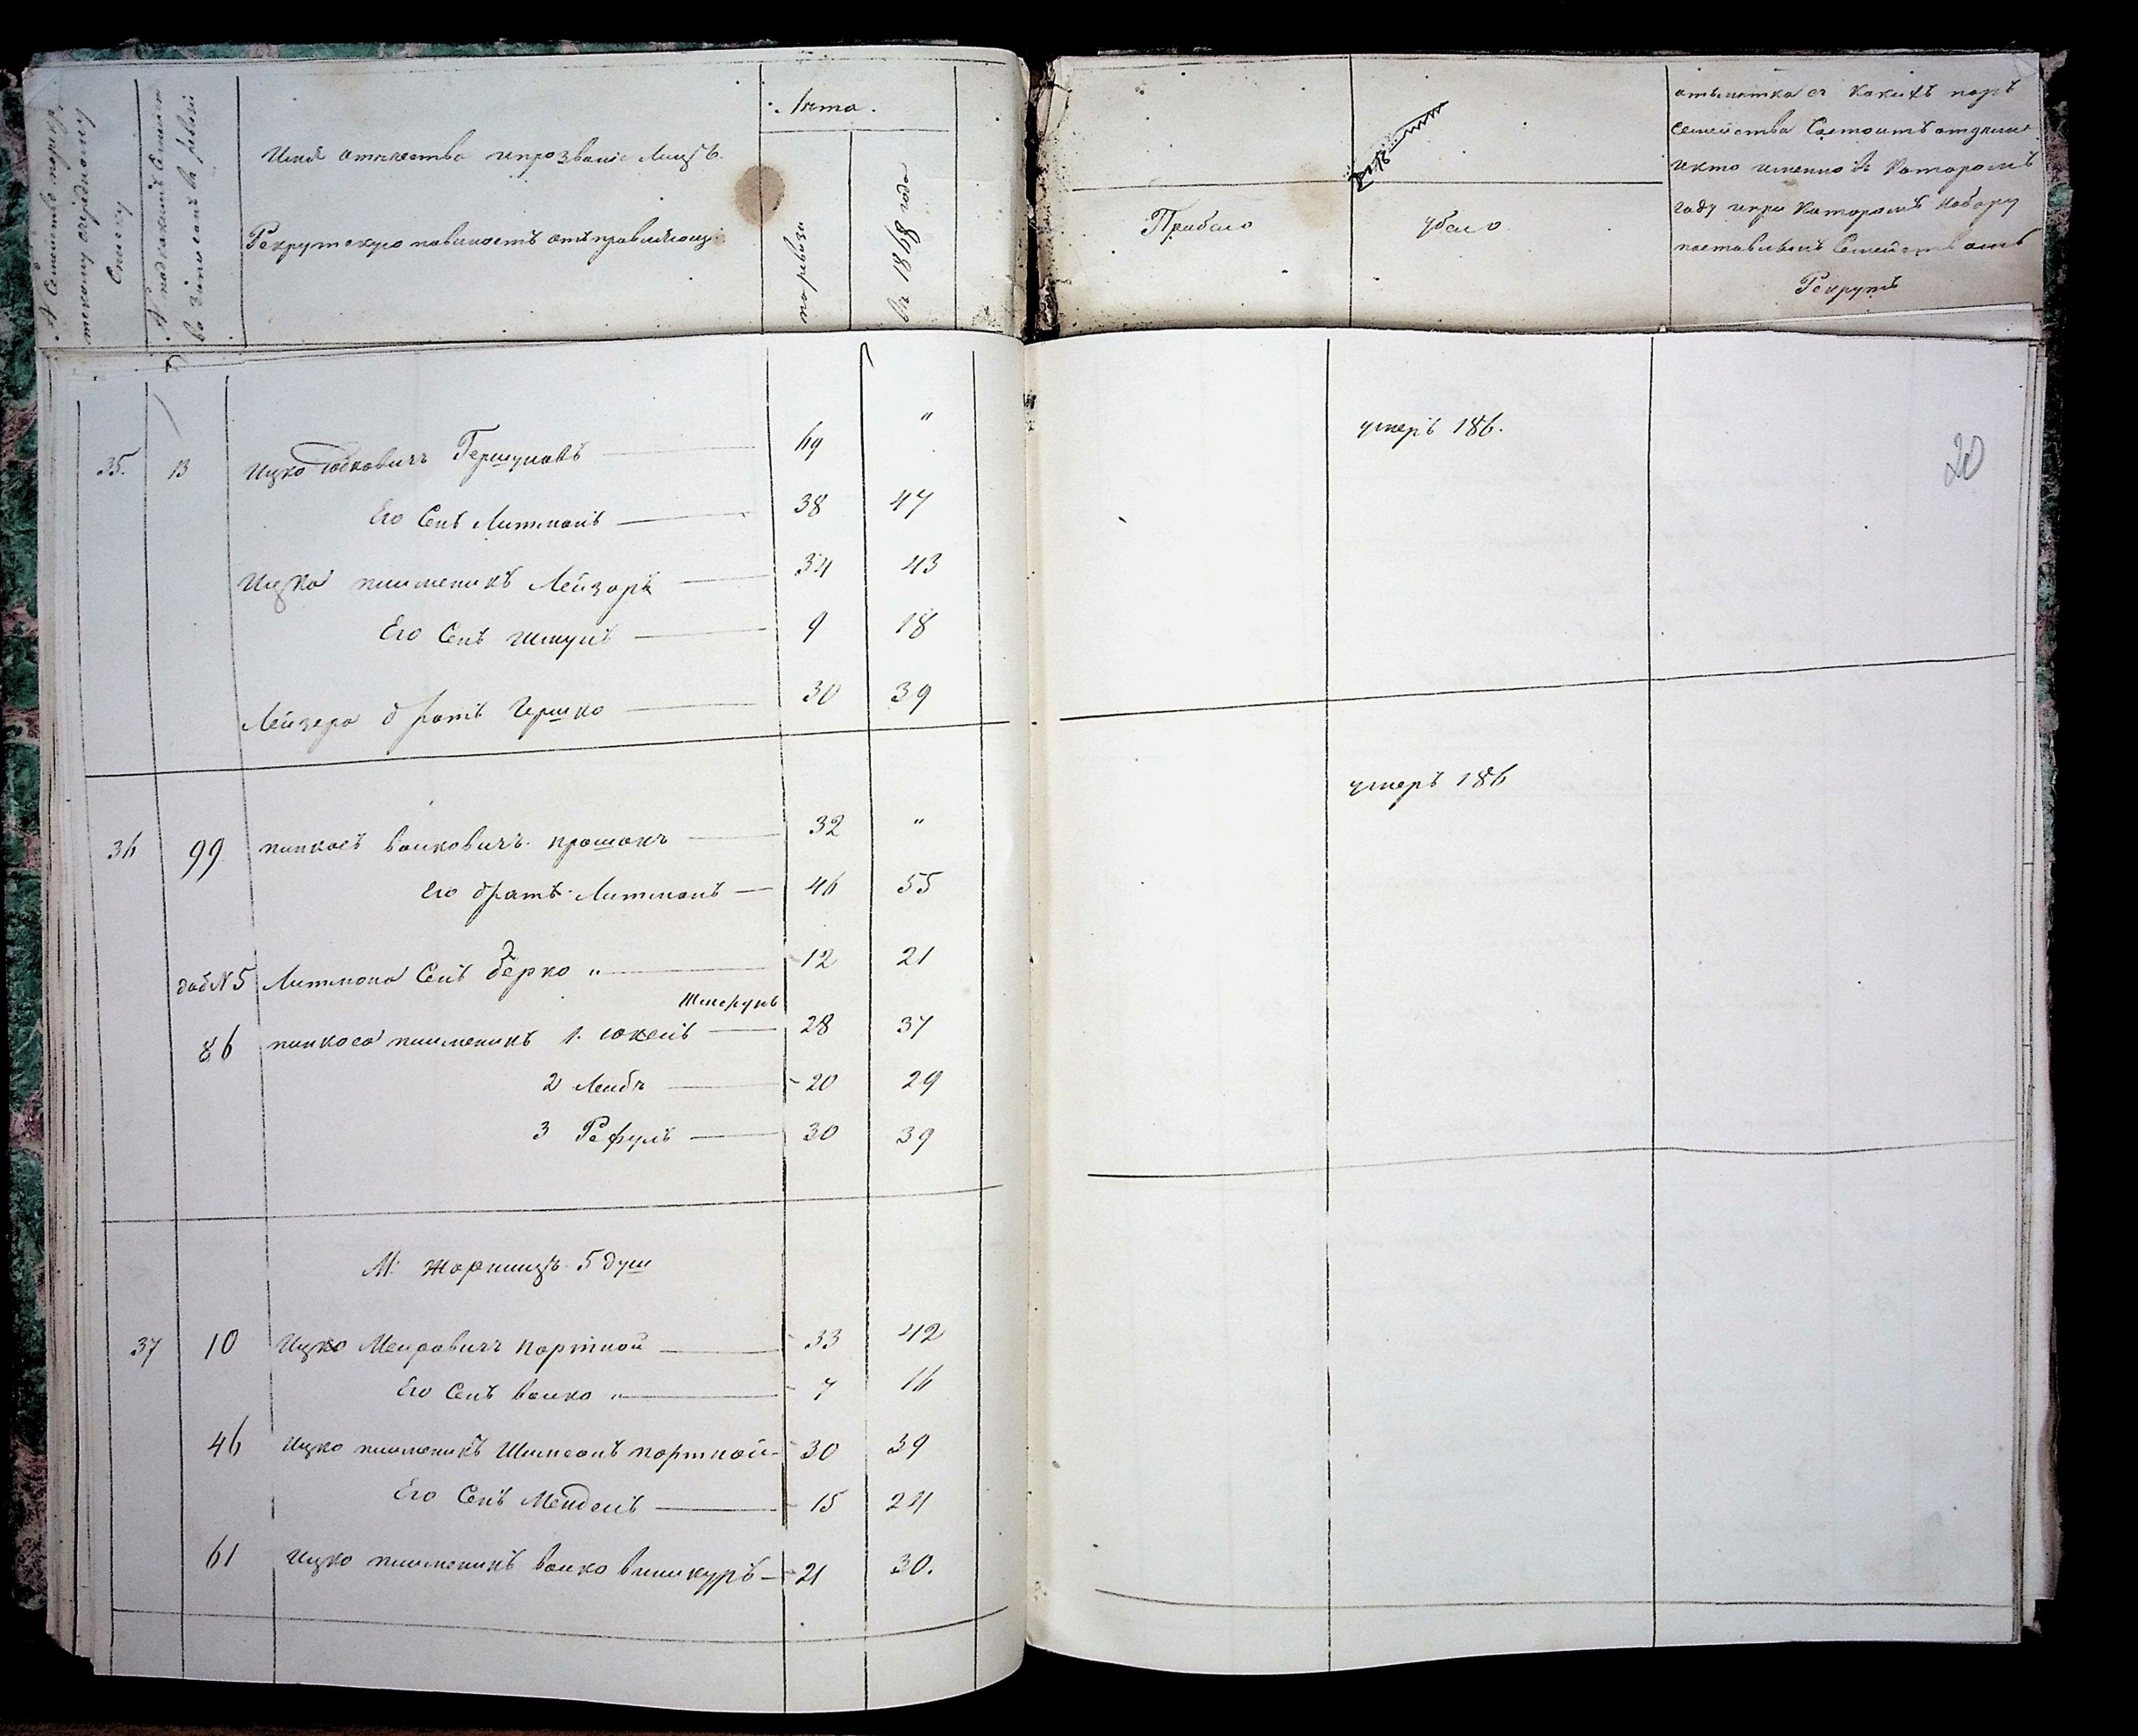 № Семейства по рекрутскому очередному Списку
№ под какимъ Семейство записанъ в ревизіи
Имя отчество и прозваніе Лицъ
Рекрутскую повиность отъправляющи
Лета.
по ревизи
въ 1868 года
Прибыло
убыло
отъметка съ какихъ поръ
Семейства Состоитъ отдельно
икто именно въ Которомъ
году ипри Которомъ Набору
поставленъ Семействомъ
Рекрутъ
20
35. 13 Ицко Юдковичъ Гершуновъ 69 " умеръ 186.
Его Сенъ Литманъ 38 47
Ицка племеникъ Лейзоръ 34 43
Его Сенъ Шмулъ 9 18
Лейзера братъ Гершко 30 39
36 99 пинкасъ Волковичъ 32 " умеръ 186
Его братъ Литманъ 46 55
доб N 5 Литмана Сенъ Берко " 12 21
86 пинкаса племеникъ 1. Юкелъ 28 37
2 Лейбъ 20 29
3 Рефулъ 30 39
М. Жорнищъ 5 душ
37 10 Ицко Меировичъ портной 33 42
Его Сенъ Волко " 7 16
46 Ицко племеникъ Шимсонъ портной 30 39
Его Сенъ Мендель 15 24
61 Ицко племеникъ Волко Виникуръ 21 30.